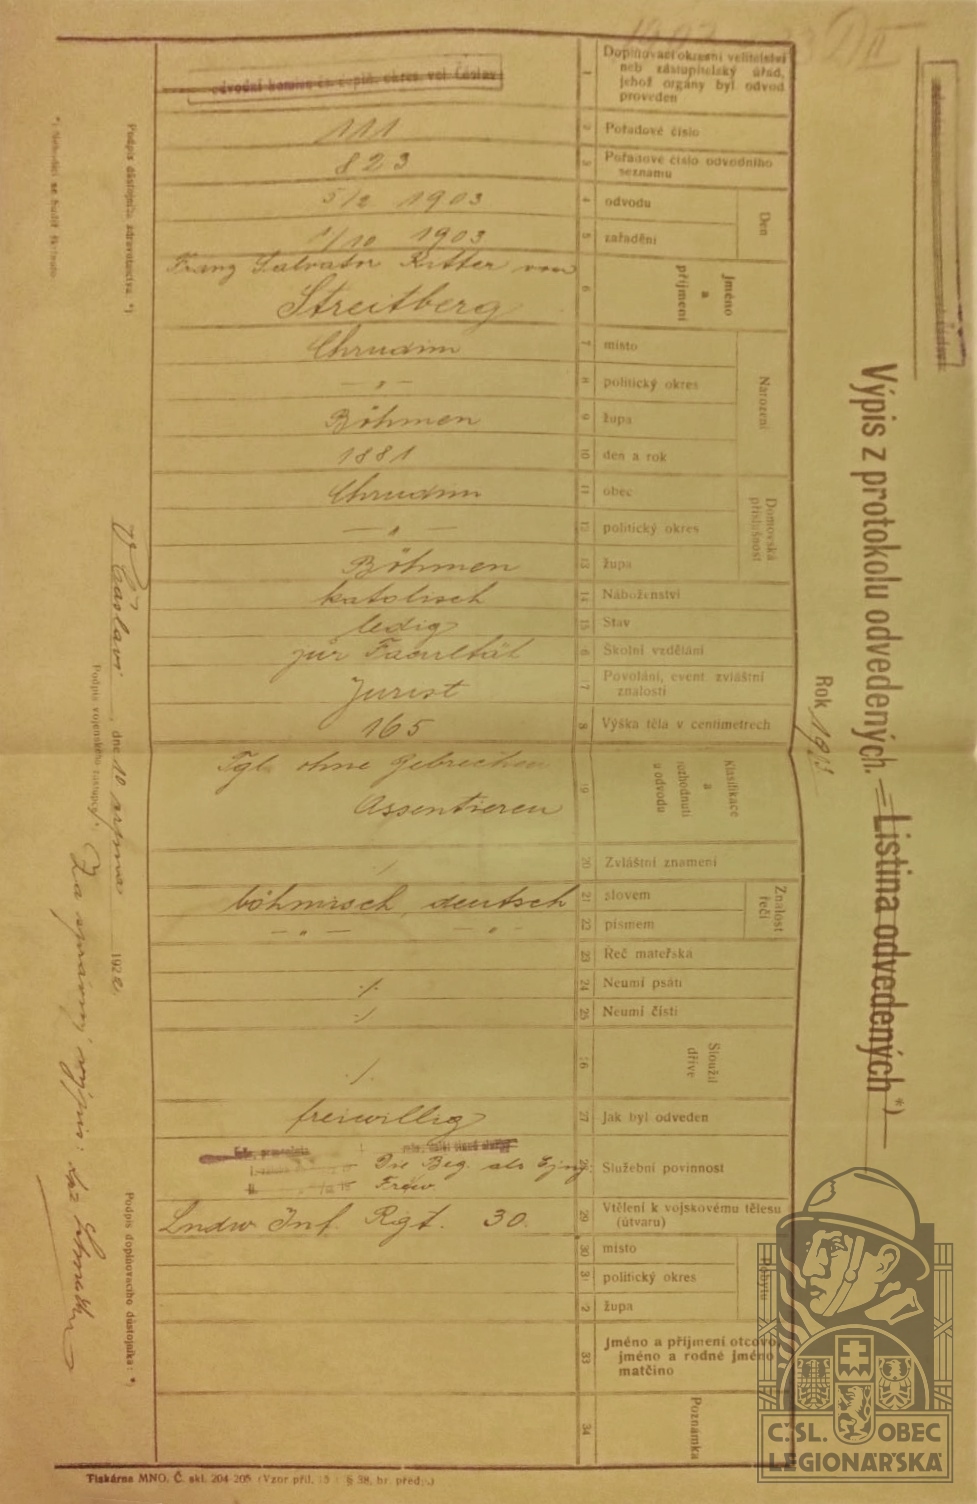 Výpis z protokolu odvedených. Listina odvedených *)
Rok
Doplňovací okresní velitelství
neb zástupitelský úřad,
jehož orgány byl odvod
proveden
1
odvodní komise čs. doplň. okres. vel. Čáslav
Pořadové číslo
2
111
Pořadové číslo odvodního
seznamu
3
823
Den
odvodu
4
5/2 1903
zařadění
5
1/10 1903
Jméno
a
příjmení
6
Franz Salvator Ritter von
Streitberg
Narození
místo
7
Chrudim
politický okres
8
— „ —
župa
9
Böhmen
den a rok
10
1881
Domovská
příslušnost
obec
11
Chrudim
politický okres
12
— „ —
župa
13
Böhmen
Náboženství
14
katolisch
Stav
15
ledig
Školní vzdělání
6
jur Facultät
Povolání, event zvláštní
znalosti
17
Jurist
Výška těla v centimetrech
8
165
Klasifikace
a
rozhodnutí
u odvodu
19
Tgl. ohne Gebrechen
Assentieren
Zvláštní znamení
20
/
Znalost
řečí
slovem
21
böhmisch, deutsch
písmem
22
— „ — — „ —
Řeč mateřská
23
Neumí psáti
24
·/·
Neumí čísti
25
·/·
Sloužil
dříve
26
·/·
Jak byl odveden
27
freiwillig
Služební povinnost
28
Pre Beg. als Ejng.
Freiw.
Vtělení k vojskovému tělesu
(útvaru)
29
Lndw Inf. Rgt. 30.
Pobytu
místo
30
politický okres
31
župa
2
Jméno a příjmení otcovo,
jméno a rodné jméno
matčino
33
Poznámka
34
V Čáslavi, dne 10 srpna 1922.
Podpis důstojníka zdravotnictva *)
Podpis vojenského zástupce
Podpis doplňovacího důstojníka: *)
Za správný výpis:
Tiskárna MNO. Č. skl. 204-205 (Vzor příl. 15 : § 38, br. před.)
Č.SL. OBEC
LEGIONÁŘSKÁ